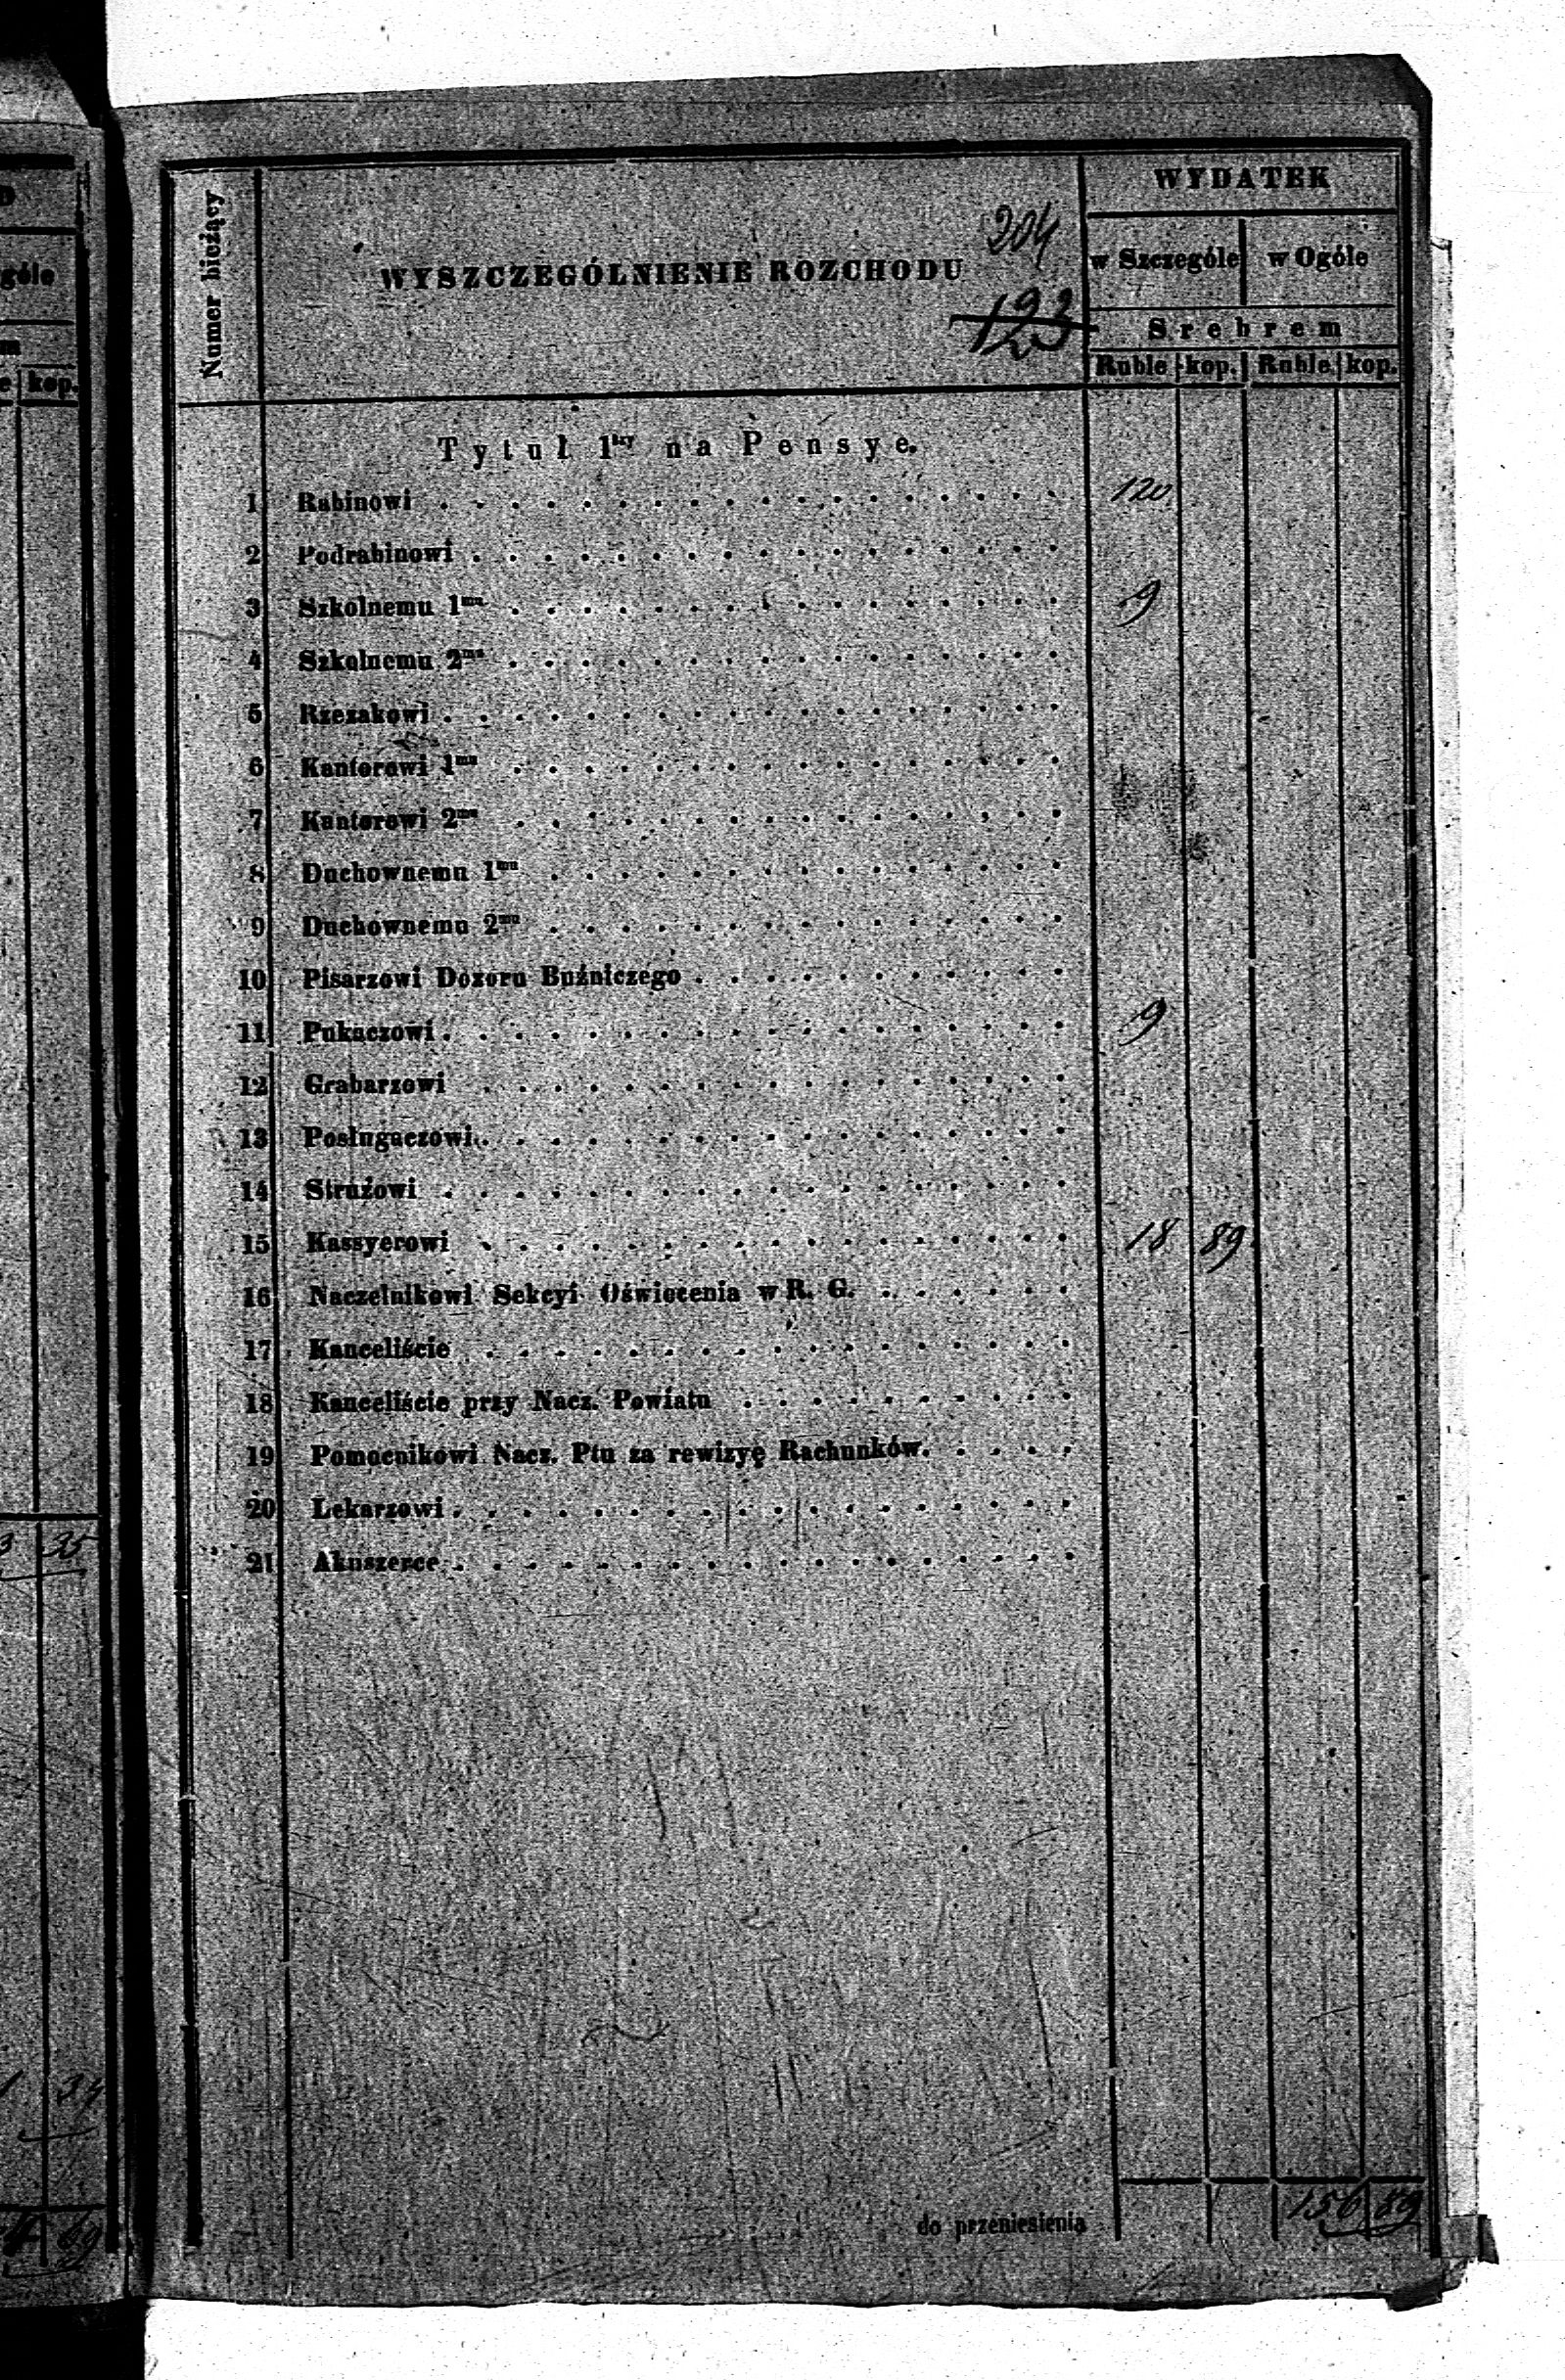 WYDATEK
Numer bieżący
WYSZCZEGÓLNIENIE ROZCHODU
204
w Szczególe w Ogóle
Srebrem
Ruble kop. Ruble kop.
Tytuł 1szy na Pensye.
1 Rabinowi 120
2 Podrabinowi
3 Szkolnemu 1mu 9
4 Szkolnemu 2mu
5 Rzezakowi
6 Kantorowi 1mu
7 Kantorowi 2mu
8 Duchownemu 1mu
9 Duchownemu 2mu
10 Pisarzowi Dozoru Bużniczego
11 Pukaczowi 9
12 Grabarzowi
13 Posługaczowi
14 Stružowi
15 Kassyerowi 18 89
16 Naczelnikowi Sekcyi Oświecenia w R. G.
17 Kanceliście
18 Kanceliście przy Nacz. Powiatu
19 Pomocnikowi Nacz. Ptu za rewizyę Rachunków.
20 Lekarzowi
21 Akuszerce
do przeniesienia 156 89
góle
kop.
35
34
69